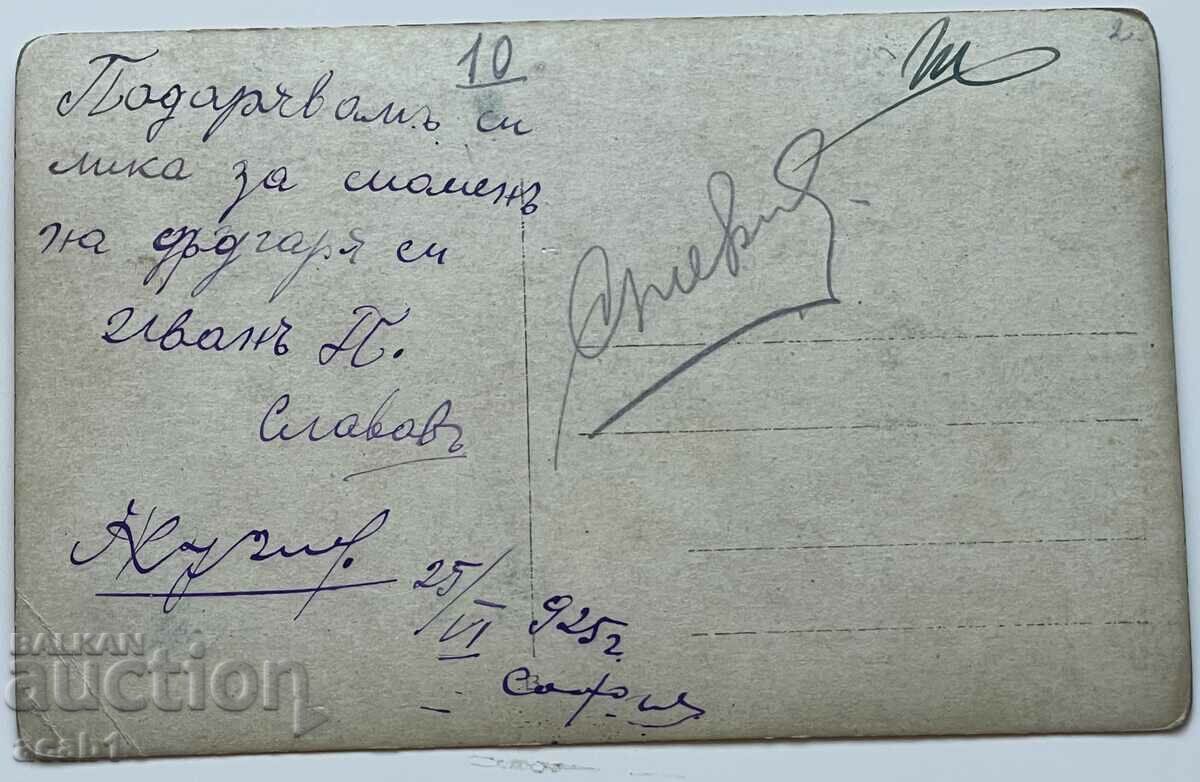 10
2.
Подарѫвамъ си
лика за споменъ
на другаря си
Иванъ П.
Славовъ
25/VI 925г.
София
BALKAN
auction
asab1